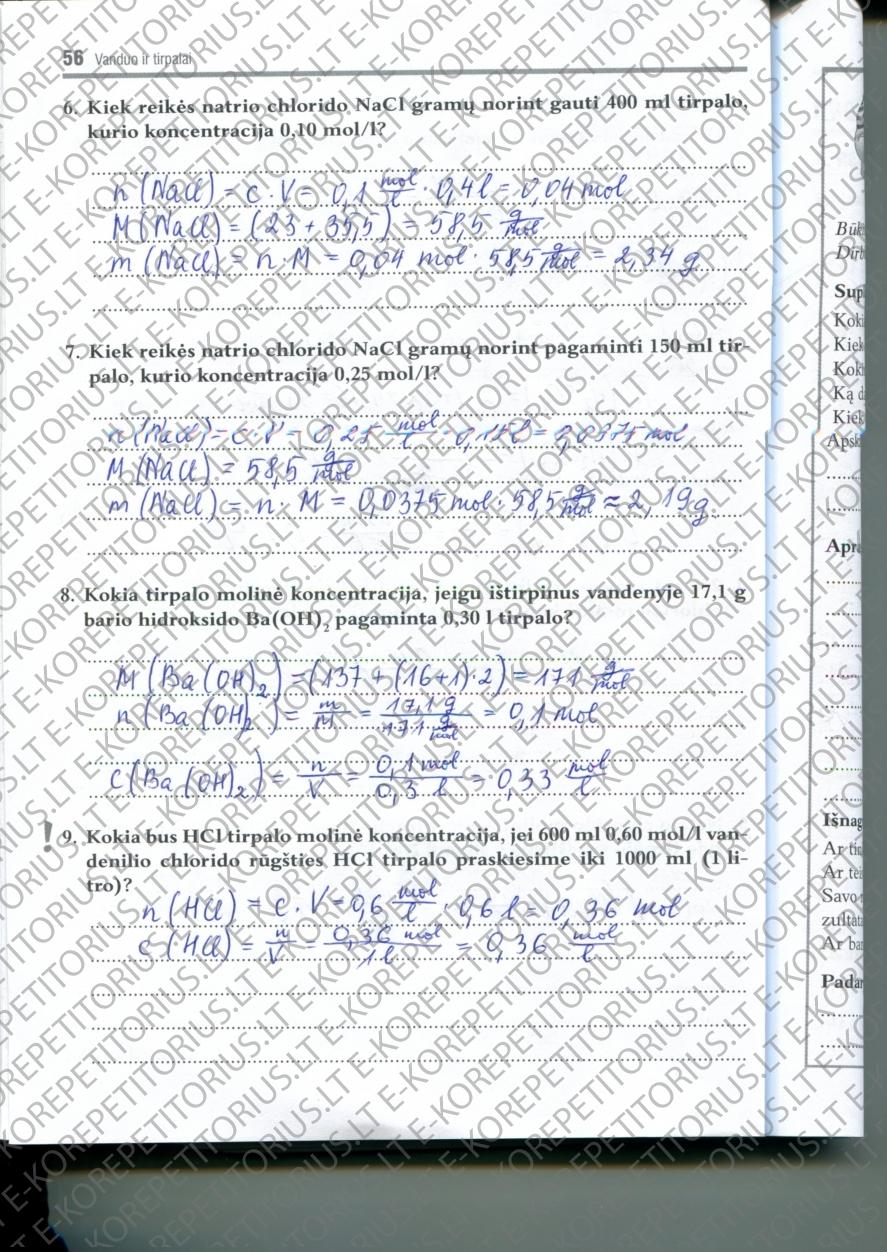 56 Vanduo ir tirpalai
6. Kiek reikės natrio chlorido NaCl gramų norint gauti 400 ml tirpalo,
kurio koncentracija 0,10 mol/l?
n (NaCl) = c · V = 0,1 mol/l · 0,4 l = 0,04 mol
M (NaCl) = (23 + 35,5) = 58,5 g/mol
m (NaCl) = n · M = 0,04 mol · 58,5 g/mol = 2,34 g
7. Kiek reikės natrio chlorido NaCl gramų norint pagaminti 150 ml tir-
palo, kurio koncentracija 0,25 mol/l?
n (NaCl) = c · V = 0,25 mol/l · 0,15 l = 0,0375 mol
M (NaCl) = 58,5 g/mol
m (NaCl) = n · M = 0,0375 mol · 58,5 g/mol ≈ 2,19 g
8. Kokia tirpalo molinė koncentracija, jeigu ištirpinus vandenyje 17,1 g
bario hidroksido Ba(OH)₂ pagaminta 0,30 l tirpalo?
M (Ba(OH)₂) = (137 + (16+1) · 2) = 171 g/mol
n (Ba(OH)₂) = m/M = 17,1 g / 171 g/mol = 0,1 mol
C (Ba(OH)₂) = n/V = 0,1 mol / 0,3 l = 0,33 mol/l
! 9. Kokia bus HCl tirpalo molinė koncentracija, jei 600 ml 0,60 mol/l van-
denilio chlorido rūgšties HCl tirpalo praskiesime iki 1000 ml (1 li-
tro)?
n (HCl) = c · V = 0,6 mol/l · 0,6 l = 0,36 mol
c (HCl) = n/V = 0,36 mol / 1 l = 0,36 mol/l
Būk
Dirb
Sup
Koki
Kiek
Koki
Ką d
Kiek
Apsk
Apra
Išnag
Ar tir
Ar tei
Savo
zultata
Ar ba
Padar
E-KOREPETITORIUS.LT